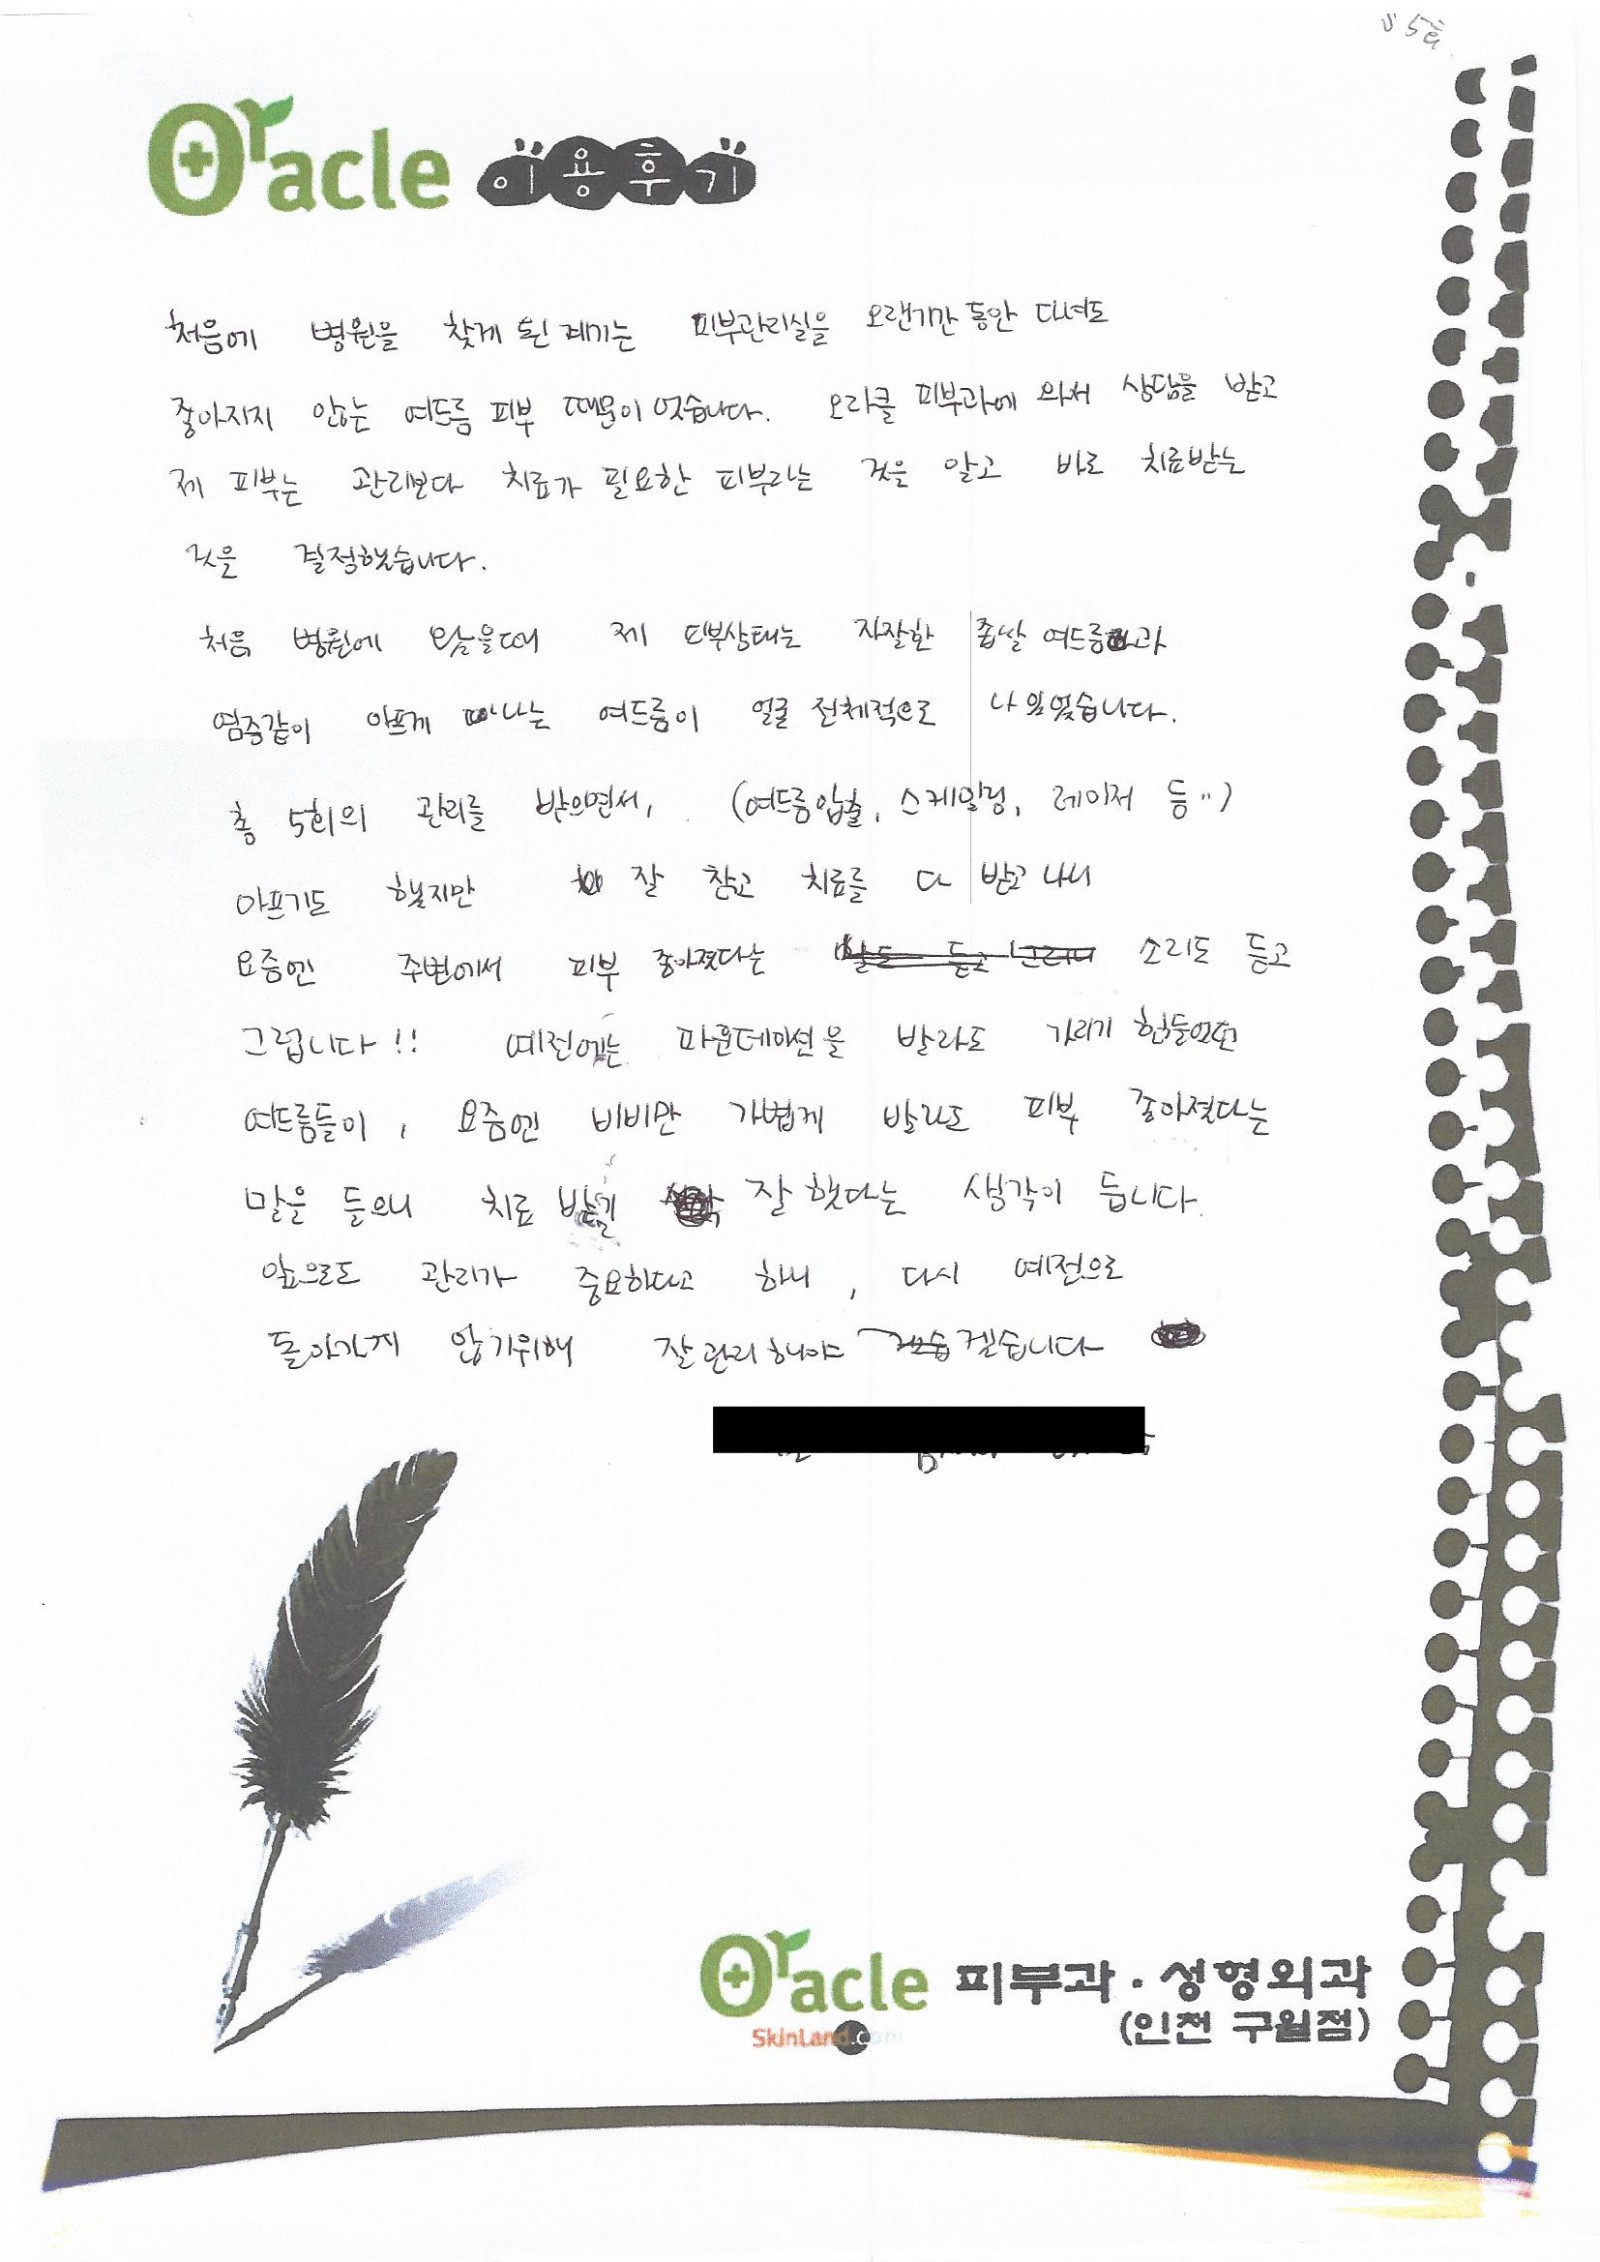 5회
Oracle 이용후기
처음에 병원을 찾게 된 계기는 피부관리실을 오랜기간 동안 다녀도
좋아지지 않는 여드름 피부 때문이었습니다. 오라클 피부과에 와서 상담을 받고
제 피부는 관리보다 치료가 필요한 피부라는 것을 알고 바로 치료받는
것을 결정했습니다.
처음 병원에 왔을때 제 피부상태는 자잘한 좁쌀 여드름과
염증같이 아프게 나는 여드름이 얼굴 전체적으로 나 있었습니다.
총 5회의 관리를 받으면서, (여드름압출, 스케일링, 레이저 등..)
아프기도 했지만 잘 참고 치료를 다 받고 나니
요즘엔 주변에서 피부 좋아졌다는 소리도 듣고
그럽니다!! 예전에는 파운데이션을 발라도 가리기 힘들었던
여드름들이, 요즘엔 비비만 가볍게 발라도 피부 좋아졌다는
말을 들으니 치료 받길 잘 했다는 생각이 듭니다.
앞으로도 관리가 중요하다고 하니, 다시 예전으로
돌아가지 않기위해 잘 관리해야 겠습니다
Oracle 피부과·성형외과
SkinLand.com (인천 구월점)